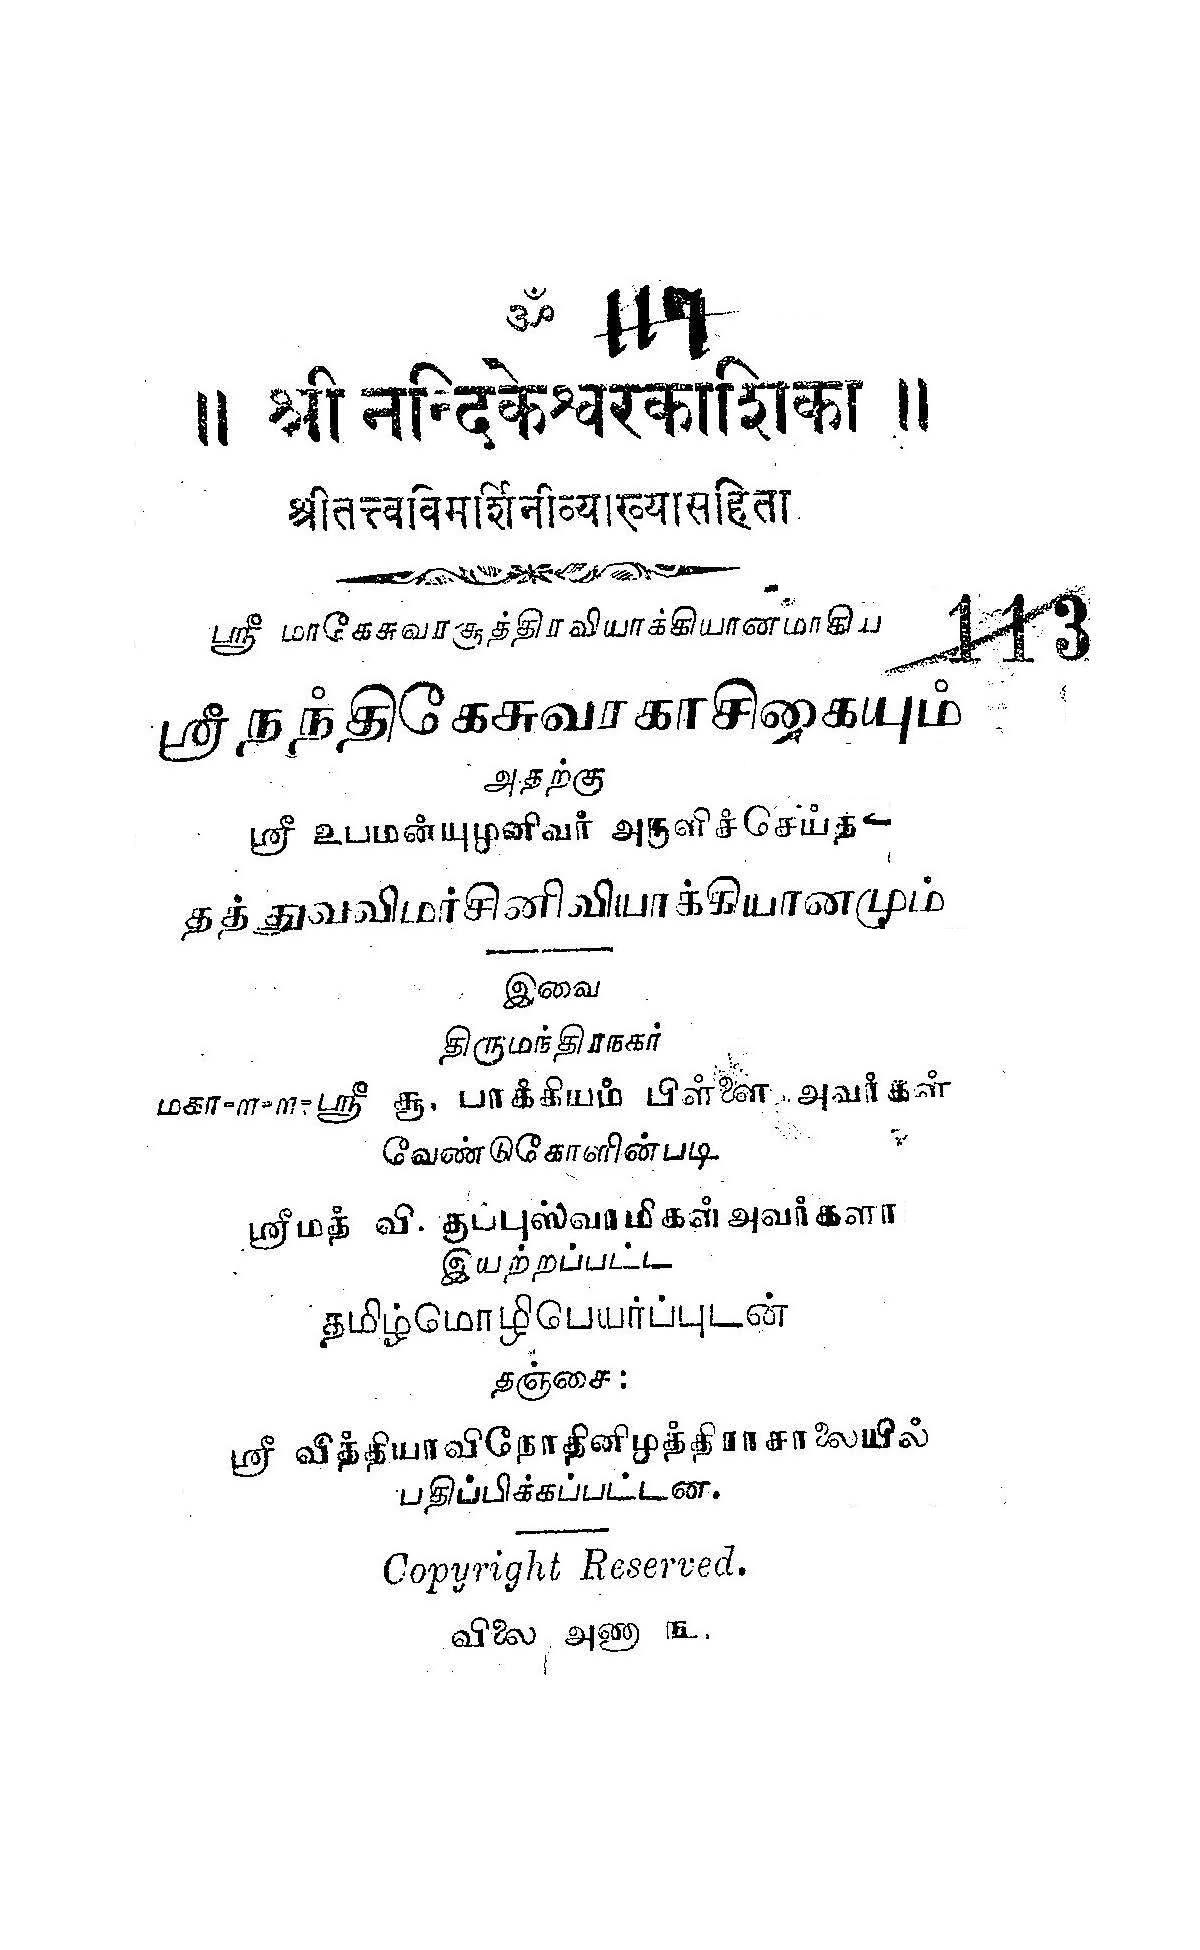 ॐ 117
॥ श्री नन्दिकेश्वरकाशिका ॥
श्रीतत्त्वविमर्शिनीव्याख्यासहिता
ஸ்ரீ மாகேசுவரசூத்திரவியாக்கியானமாகிய 113
ஸ்ரீ நந்திகேசுவரகாசிகையும்
அதற்கு
ஸ்ரீ உபமன்யுமுனிவர் அருளிச்செய்த
தத்துவவிமர்சினிவியாக்கியானமும்
இவை
திருமந்திரநகர்
மகா-ள-ள-ஸ்ரீ சூ. பாக்கியம் பிள்ளை அவர்கள்
வேண்டுகோளின்படி
ஸ்ரீமத் வி. குப்புஸ்வாமிகள்அவர்களா
இயற்றப்பட்ட
தமிழ்மொழிபெயர்ப்புடன்
தஞ்சை:
ஸ்ரீ வித்தியாவிநோதினிமுத்திராசாலையில்
பதிப்பிக்கப்பட்டன.
Copyright Reserved.
விலை அணா ௩.